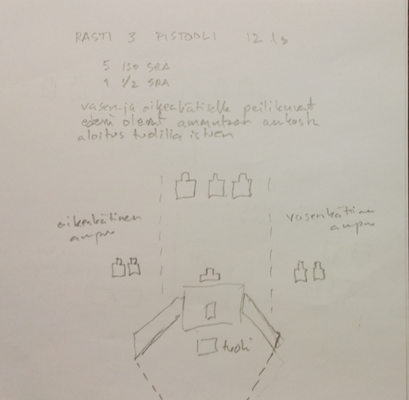 RASTI 3 PISTOOLI 12 ls
5 ISO SRA
1 1/2 SRA
vasen ja oikeakätiselle peilikuvat
edessä olevat ammutaan aukosta
aloitus tuolilla istuen
oikeakätinen
ampuu
vasenkätinen
ampuu
tuoli